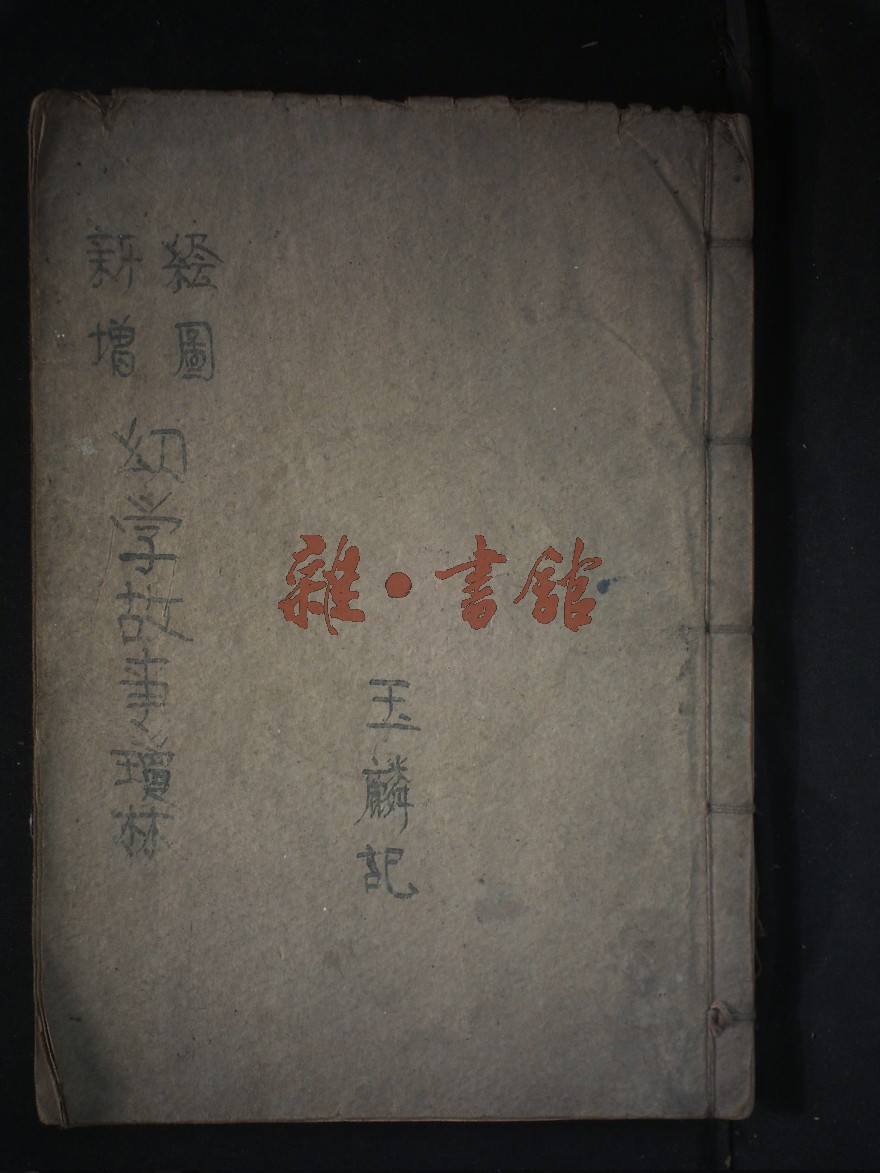 绘圖
新增
幼学故事瓊林
玉麟記
雜·書館